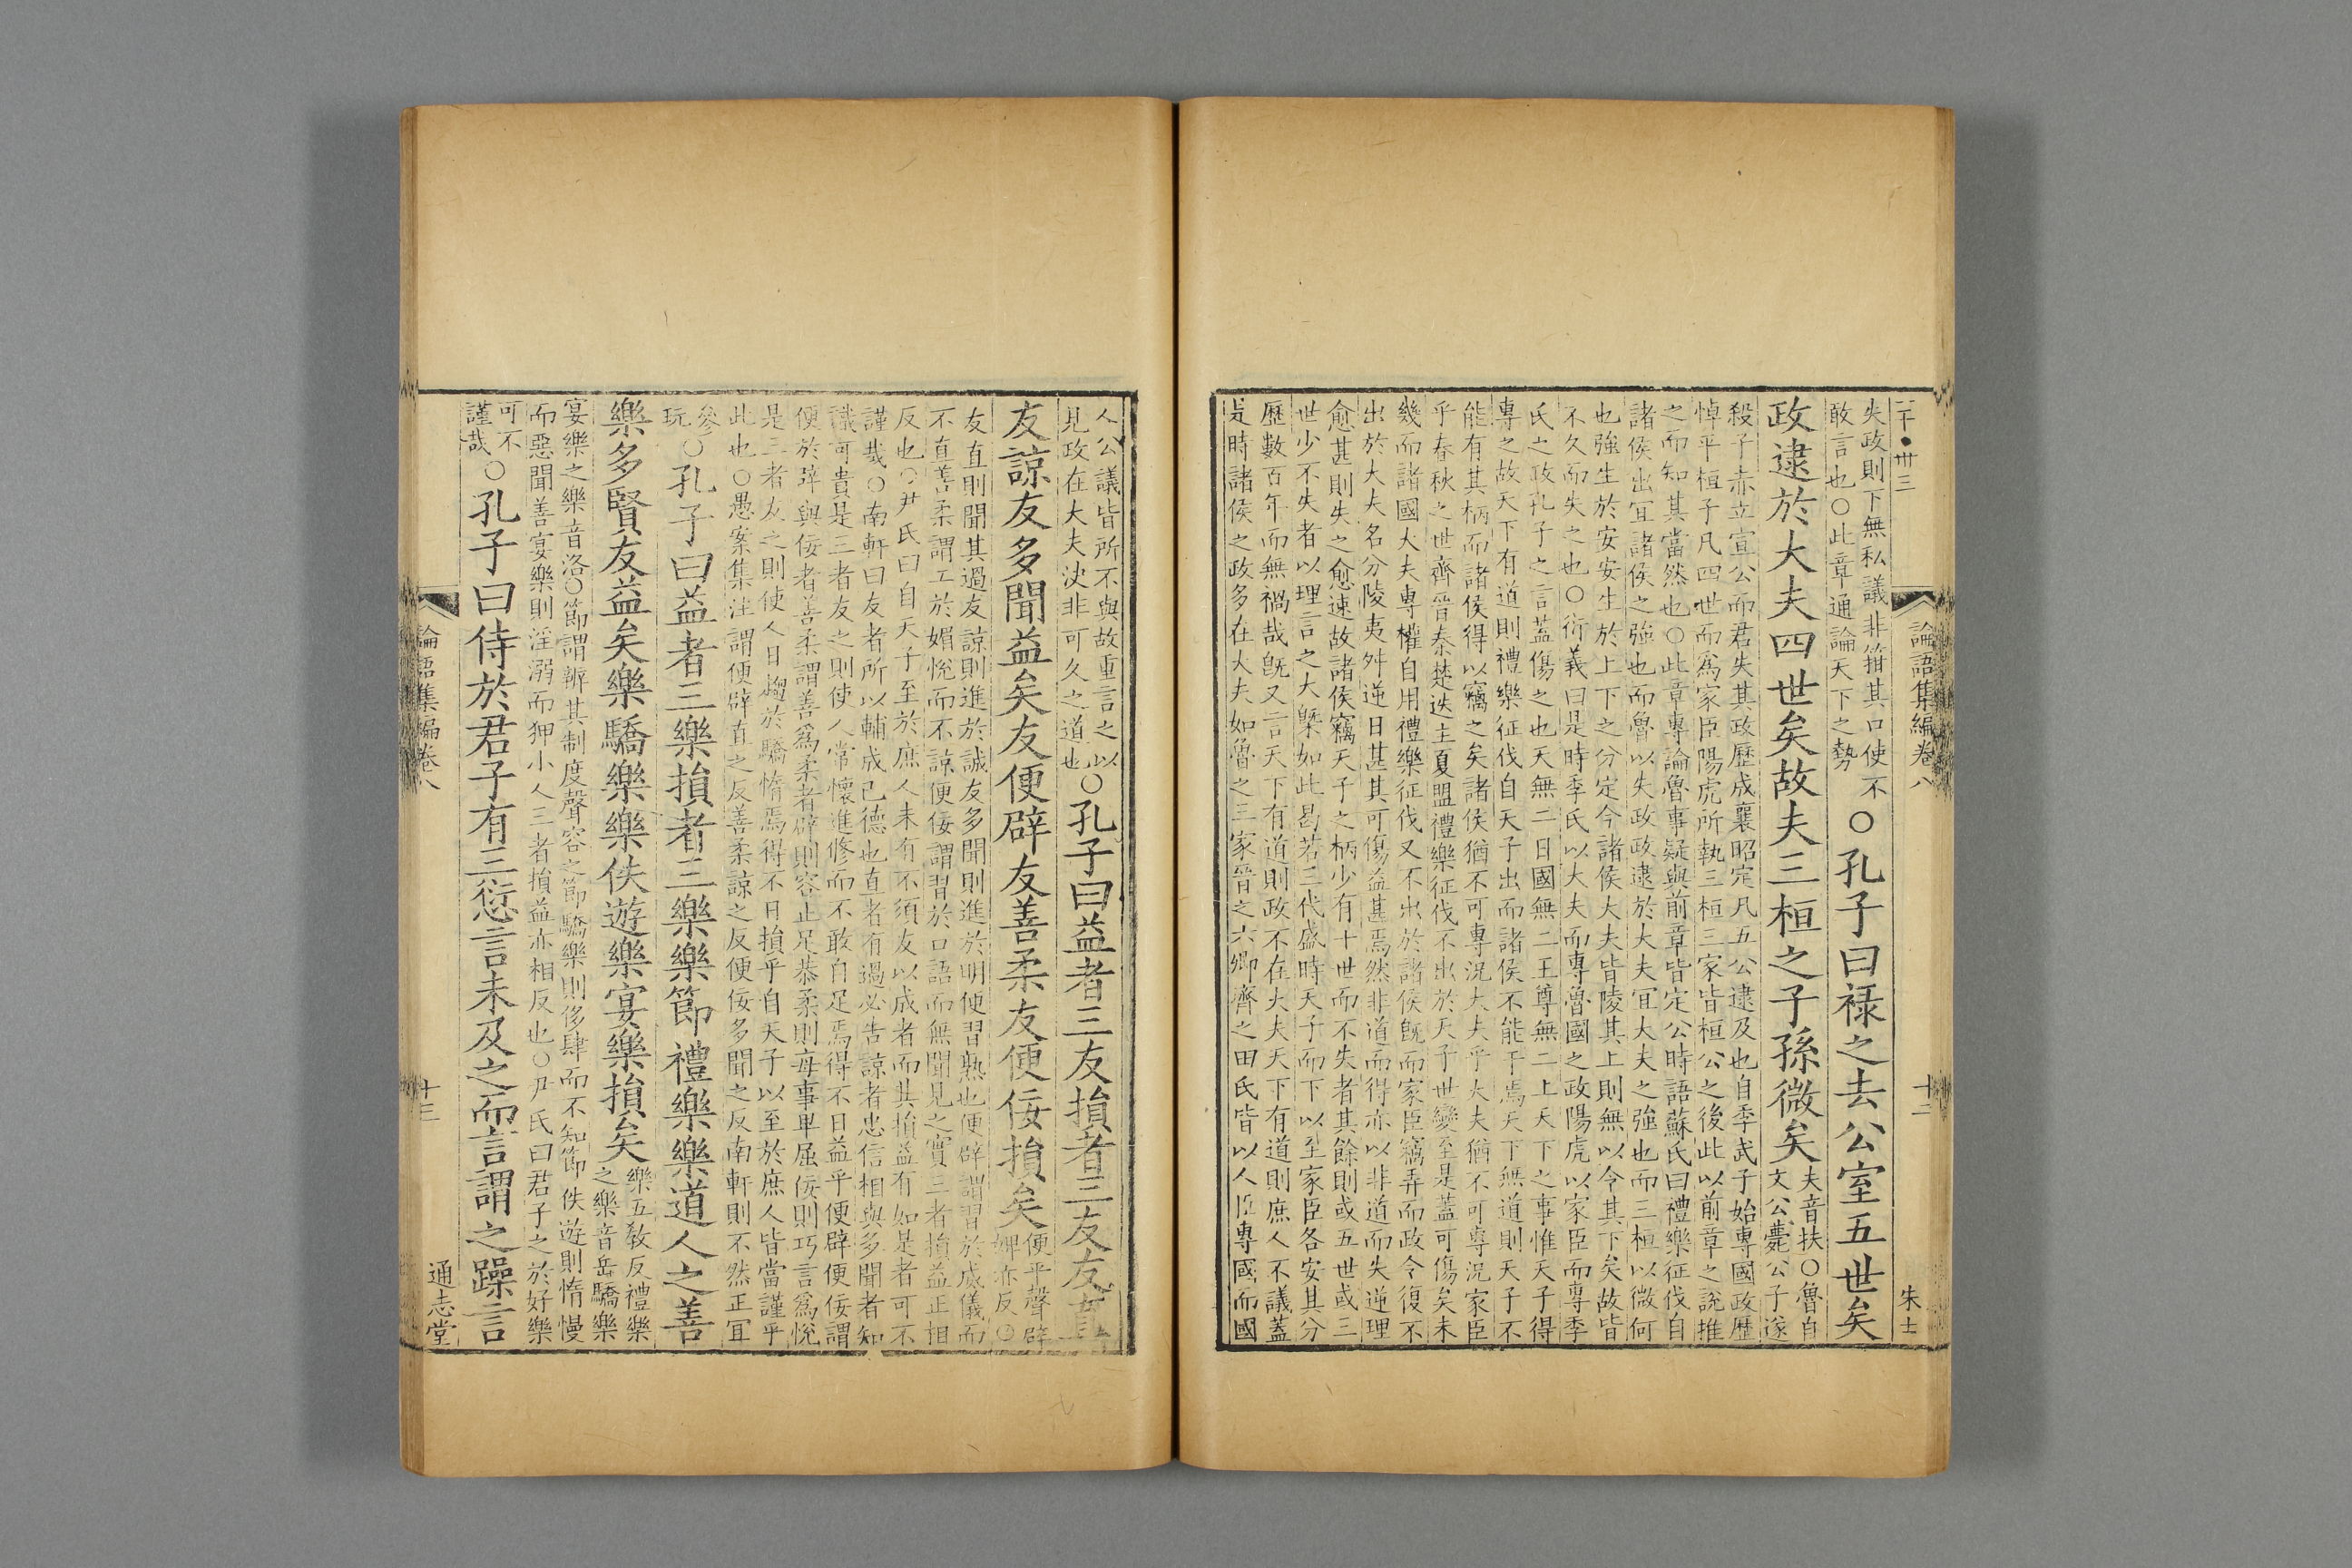 二千●卌三
論語集編卷八
十二
朱士
失政則下無私議非箝其口使不
敢言也○此章通論天下之勢
○孔子曰祿之去公室五世矣
政逮於大夫四世矣故夫三桓之子孫微矣
夫音扶○魯自
文公薨公子遂
殺子赤立宣公而君失其政歷成襄昭定凡五公逮及也自季武子始專國政歷
悼平桓子凡四世而爲家臣陽虎所執三桓三家皆桓公之後此以前章之說推
之而知其當然也○此章專論魯事疑與前章皆定公時語蘇氏曰禮樂征伐自
諸侯出宜諸侯之強也而魯以失政政逮於大夫宜大夫之強也而三桓以微何
也強生於安安生於上下之分定今諸侯大夫皆陵其上則無以令其下矣故皆
不久而失之也○衍義曰是時季氏以大夫而專魯國之政陽虎以家臣而專季
氏之政孔子之言蓋傷之也天無二日國無二王尊無二上天下之事惟天子得
專之故天下有道則禮樂征伐自天子出而諸侯不能干焉天下無道則天子不
能有其柄而諸侯得以竊之矣諸侯猶不可專況大夫乎大夫猶不可專況家臣
乎春秋之世齊晉秦楚迭主夏盟禮樂征伐不出於天子世變至是蓋可傷矣未
幾而諸國大夫專權自用禮樂征伐又不出於諸侯旣而家臣竊弄而政令復不
出於大夫名分陵夷舛逆日甚其可傷益甚焉然非道而得亦以非道而失逆理
愈甚則失之愈速故諸侯竊天子之柄少有十世而不失者其餘則或五世或三
世少不失者以理言之大槩如此曷若三代盛時天子而下以至家臣各安其分
歷數百年而無禍哉旣又言天下有道則政不在大夫天下有道則庶人不議蓋
是時諸侯之政多在大夫如魯之三家晉之六卿齊之田氏皆以人臣專國而國
人公議皆所不與故重言之以
見政在大夫決非可久之道也
○孔子曰益者三友損者三友友直
友諒友多聞益矣友便辟友善柔友便佞損矣
便平聲辟
婢亦反○
友直則聞其過友諒則進於誠友多聞則進於明便習熟也便辟謂習於威儀而
不直善柔謂工於媚悅而不諒便佞謂習於口語而無聞見之實三者損益正相
反也○尹氏曰自天子至於庶人未有不須友以成者而其損益有如是者可不
謹哉○南軒曰友者所以輔成己德也直者有過必告諒者忠信相與多聞者知
識可貴是三者友之則使人常懷進修而不敢自足焉得不日益乎便辟便佞謂
便於辟與佞者善柔謂善爲柔者辟則容止足恭柔則每事卑屈佞則巧言爲悅
是三者友之則使人日趨於驕惰焉得不日損乎自天子以至於庶人皆當謹乎
此也○愚案集注謂便辟直之反善柔諒之反便佞多聞之反南軒則不然正宜
參
玩
○孔子曰益者三樂損者三樂樂節禮樂樂道人之善
樂多賢友益矣樂驕樂樂佚遊樂宴樂損矣
樂五敎反禮樂
之樂音岳驕樂
宴樂之樂音洛○節謂辨其制度聲容之節驕樂則侈肆而不知節佚遊則惰慢
而惡聞善宴樂則淫溺而狎小人三者損益亦相反也○尹氏曰君子之於好樂
可不
謹哉
○孔子曰侍於君子有三愆言未及之而言謂之躁言
論語集編卷八
十三
通志堂